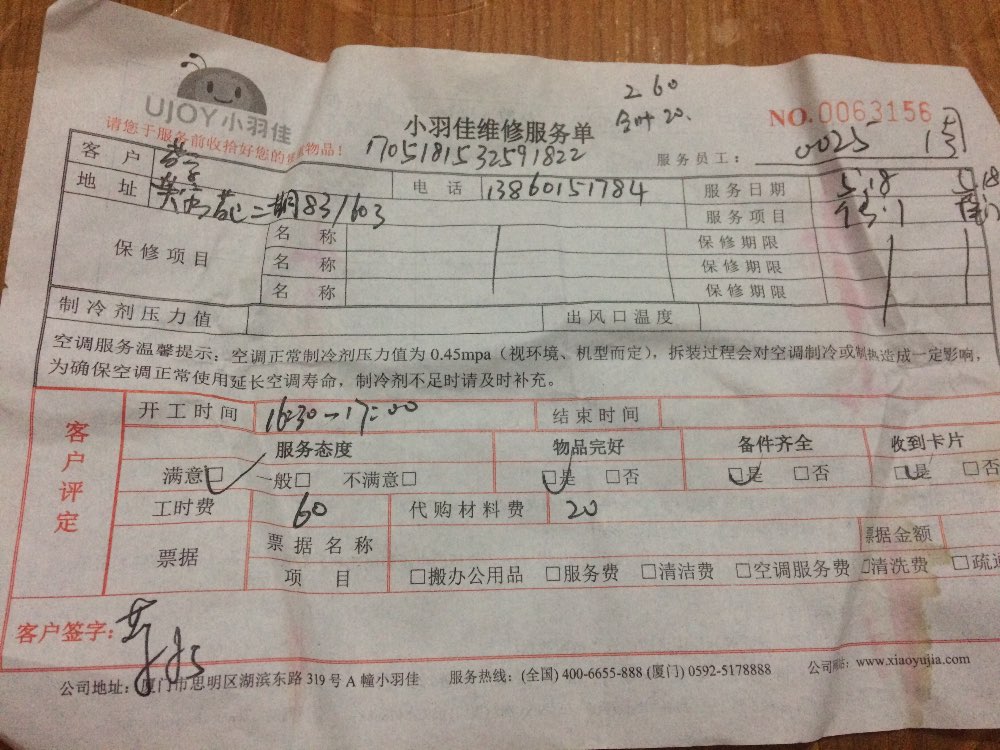 UJOY小羽佳
请您于服务前收拾好您的 物品！
小羽佳维修服务单
260
20.
NO.0063156
1705181532591822
服务员工： 0025
客户
地址 二期83/603
电话 13860151784
服务日期 5.18 5.18
服务项目
保修项目
名称 保修期限
名称 保修期限
名称 保修期限
制冷剂压力值 出风口温度
空调服务温馨提示：空调正常制冷剂压力值为0.45mpa（视环境、机型而定），拆装过程会对空调制冷或制热造成一定影响，
为确保空调正常使用延长空调寿命，制冷剂不足时请及时补充。
客户评定
开工时间 16:30-17:00 结束时间
服务态度 物品完好 备件齐全 收到卡片
满意□ 一般□ 不满意□ □是 □否 □是 □否 □是 □否
工时费 60 代购材料费 20
票据
票据名称 票据金额
项目 □搬办公用品 □服务费 □清洁费 □空调服务费 □清洗费 □疏通
客户签字：
公司地址：厦门市思明区湖滨东路319号A幢小羽佳 服务热线：(全国) 400-6655-888 (厦门) 0592-5178888 公司网站：www.xiaoyujia.com